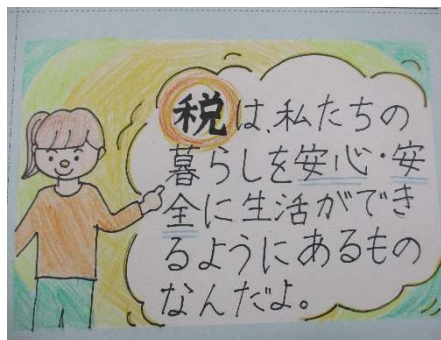 税は、私たちの
暮らしを安心・安
全に生活ができ
るようにあるもの
なんだよ。